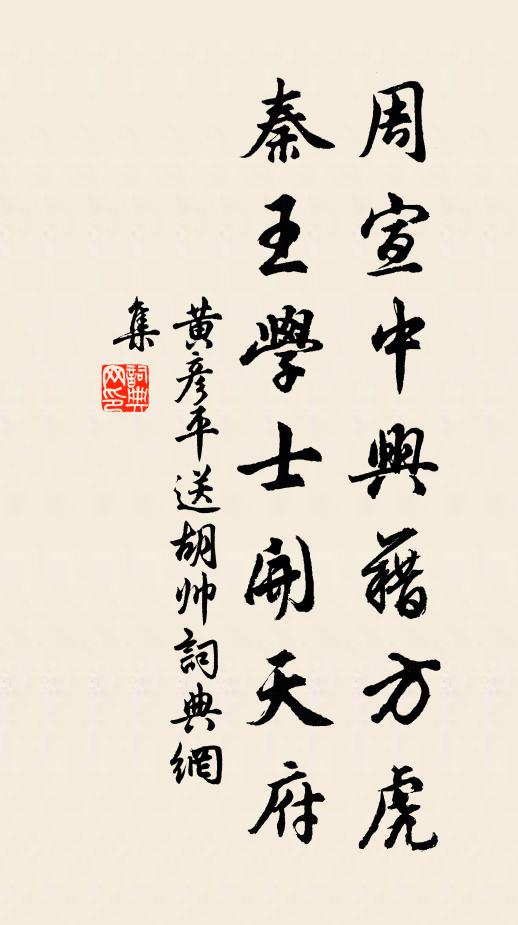 周宣中興藉方虎
秦王學士開天府
黃彥平送胡帅詞典網
集
詞典
网印